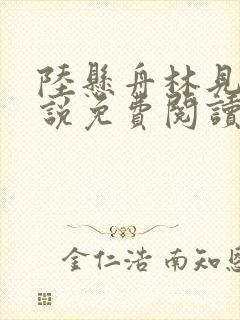 陸懸舟林見
說免費閱讀
金仁浩 南知恩